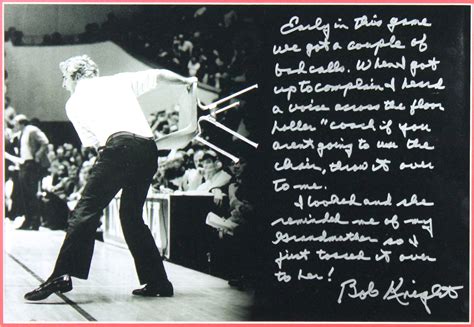 Early in this game
we got a couple of
bad calls. When I got
up to complain I heard
a voice across the floor
holler "coach if you
aren't going to use the
chair, throw it over
to me.
I looked and she
reminded me of my
Grandmother so I
just tossed it over
to her!
Bob Knight